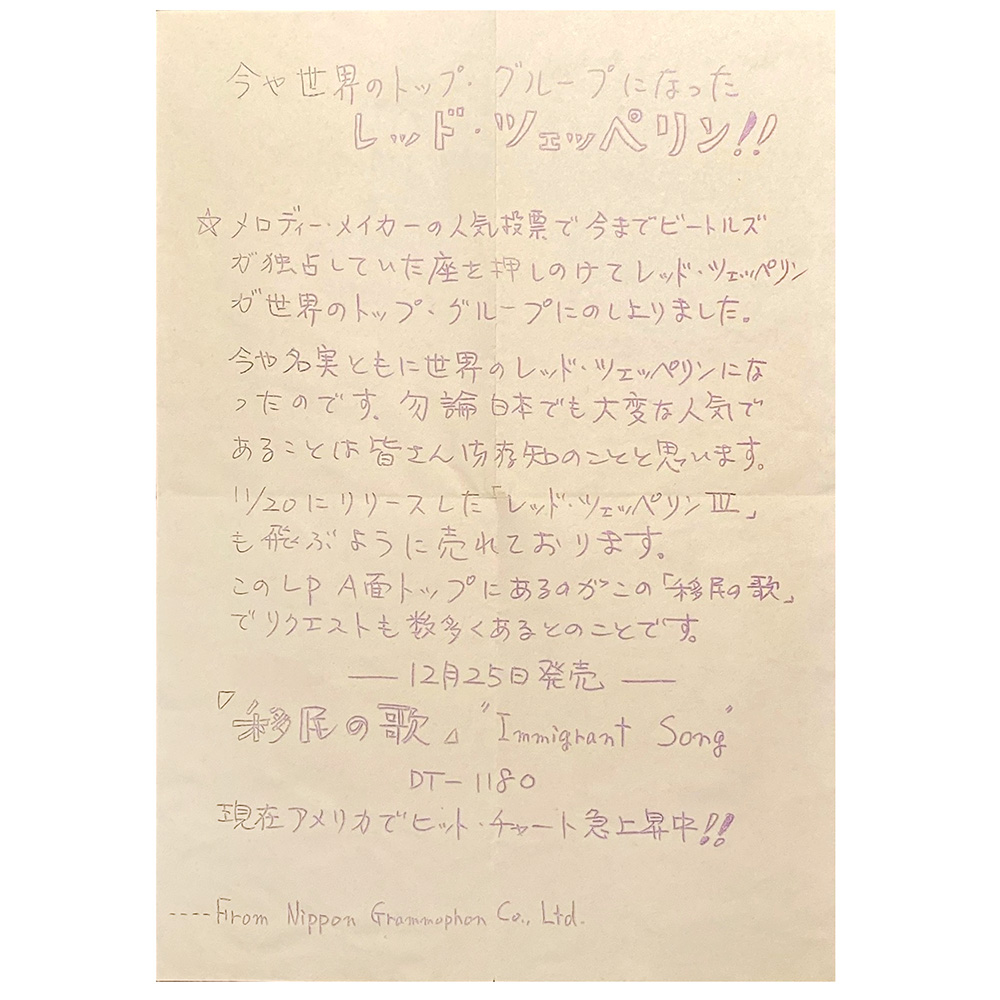 今や世界のトップ・グループになった
レッド・ツェッペリン!!
☆メロディー・メイカーの人気投票で今までビートルズ
が独占していた座を押しのけてレッド・ツェッペリン
が世界のトップ・グループにのし上りました。
今や名実ともに世界のレッド・ツェッペリンにな
ったのです。勿論日本でも大変な人気で
あることは皆さん御存知のことと思います。
11/20にリリースした「レッド・ツェッペリンⅢ」
も飛ぶように売れております。
このLP A面トップにあるのがこの「移民の歌」
でリクエストも数多くあるとのことです。
── 12月25日発売 ──
「移民の歌」 "Immigrant Song"
DT-1180
現在アメリカでヒット・チャート急上昇中!!
----From Nippon Grammophon Co., Ltd.